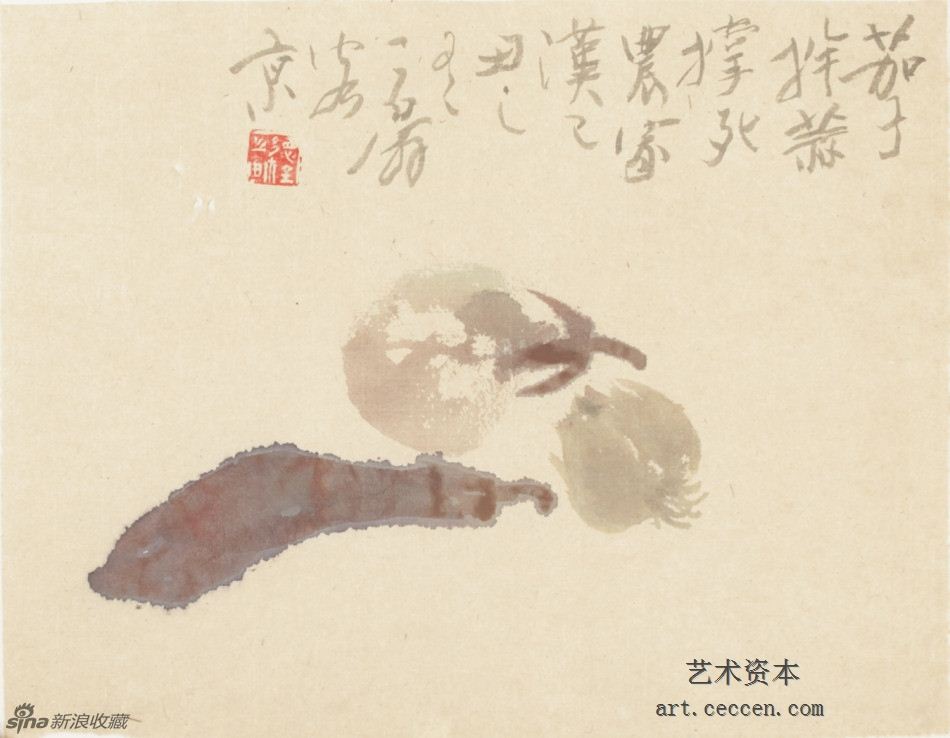 茄子
拌蒜
撑死
農家
漢己
丑之
冬
翁
客
京
艺术资本
art.ceccen.com
sina新浪收藏